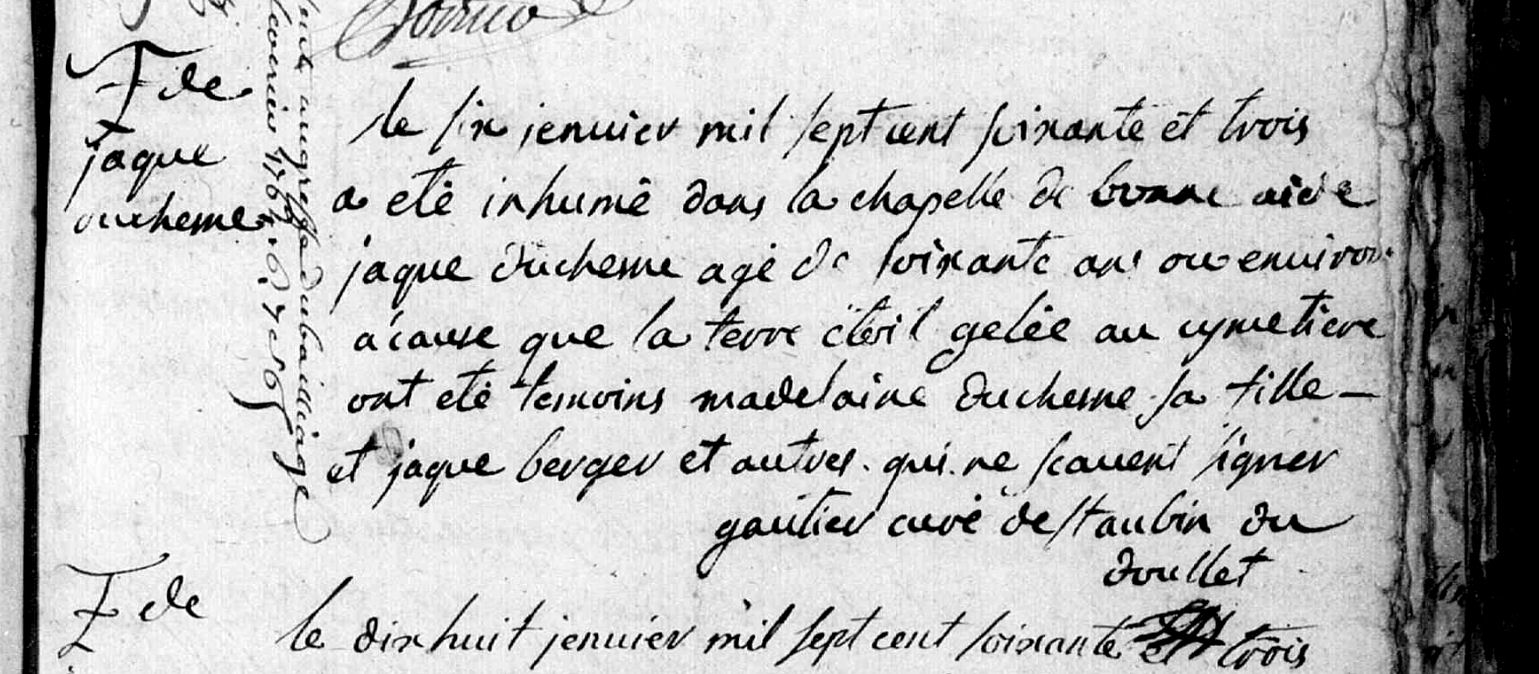 S de
jaque
duchesne
le six jenuier mil sept cent soixante et trois
a eté inhumé dans la chapelle de bonne aide
jaque duchesne agé de soixante ans ou enuiron
a cause que la terre étoit gelée au cymetiere
ont eté temoins madelaine duchesne sa fille —
et jaque berger et autres qui ne scauent signer
gautier curé de st aubin du
doullet
S de
le dix huit jenuier mil sept cent soixante et trois